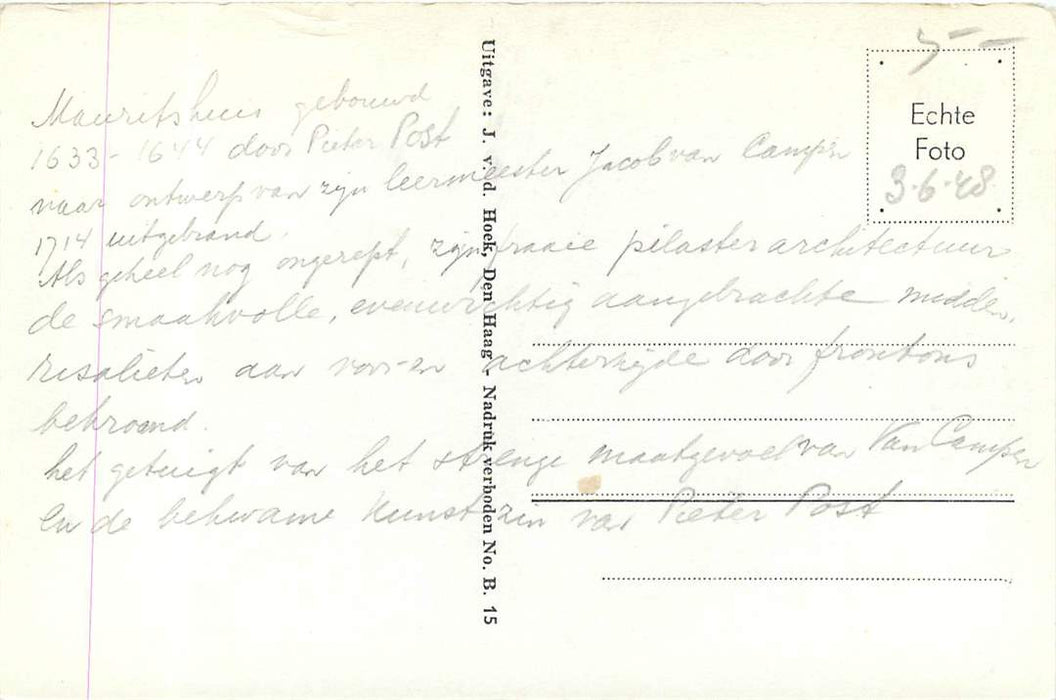 Mauritshuis gebouwd
1633-1644 door Pieter Post
naar ontwerp van zijn leermeester Jacob van Campen
1714 uitgebrand.
Als geheel nog ongerept, zijn fraaie pilasterarchitectuur
de smaakvolle, evenwichtig aangebrachte midden
risalieten aan voor-en achterzijde door frontons
bekroond.
het getuigt van het strenge maatgevoel van Van Campen
en de bekwame kunstzin van Pieter Post
Uitgave: J. v. d. Hoek, Den Haag - Nadruk verboden No. B. 15
Echte
Foto
3.6.48